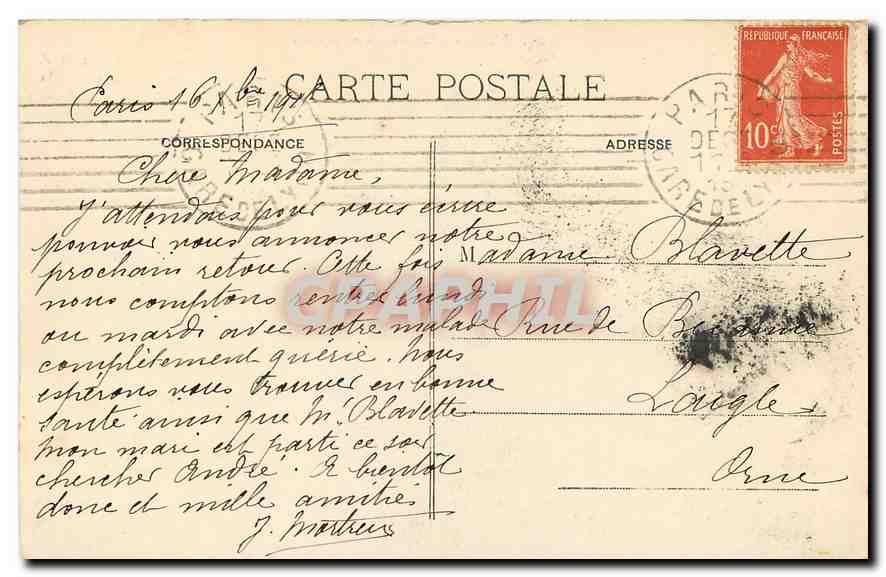 RÉPUBLIQUE FRANÇAISE
10c
POSTES
CARTE POSTALE
Paris 16 Xbre 191
CORRESPONDANCE
ADRESSE
PARIS
17
GARE DE LYON
PARIS
17
DEC
GARE DE LY
Chere Madame,
J'attendais pour vous écrire
pouvoir vous annoncer notre
prochain retour. Cette fois
nous comptons rentrer lundi
ou mardi avec notre malade
complètement guérie. Nous
espérons vous trouver en bonne
santé ainsi que Mr Blavette
mon mari est parti ce soir
chercher André. A bientôt
donc et mille amitiés
J. Mortreux
Madame Blavette
Rue de
Laigle
Orne
CPAPHIL